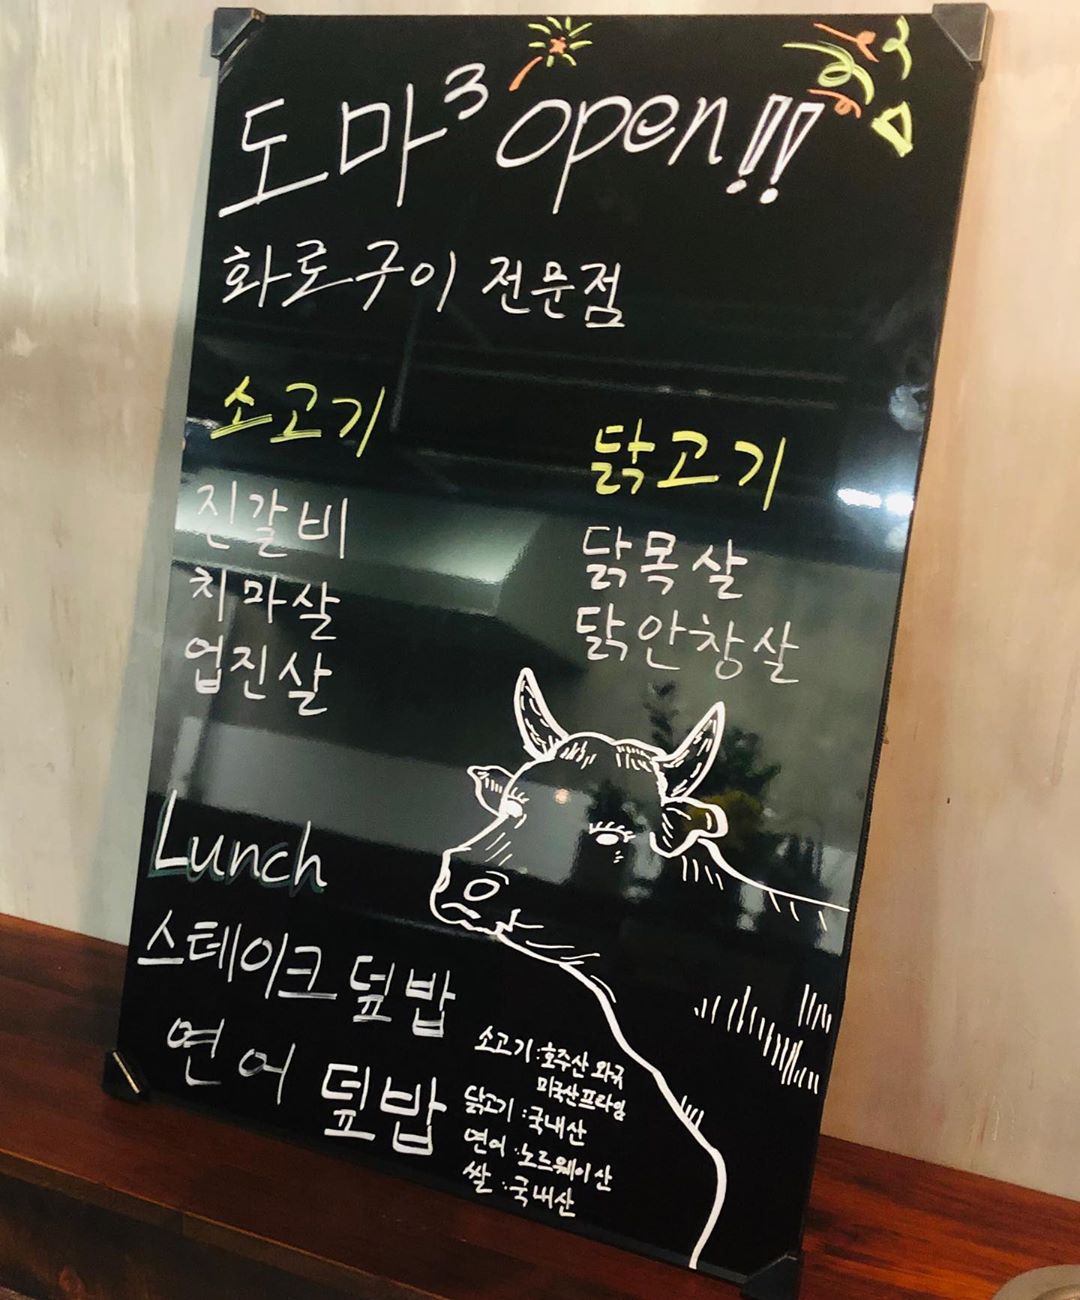 도마³ open!!
화로구이 전문점
소고기
진갈비
치마살
업진살
닭고기
닭목살
닭안창살
Lunch
스테이크 덮밥
연어 덮밥
소고기 : 호주산 와규
미국산 프라임
닭고기 : 국내산
연어 : 노르웨이산
쌀 : 국내산